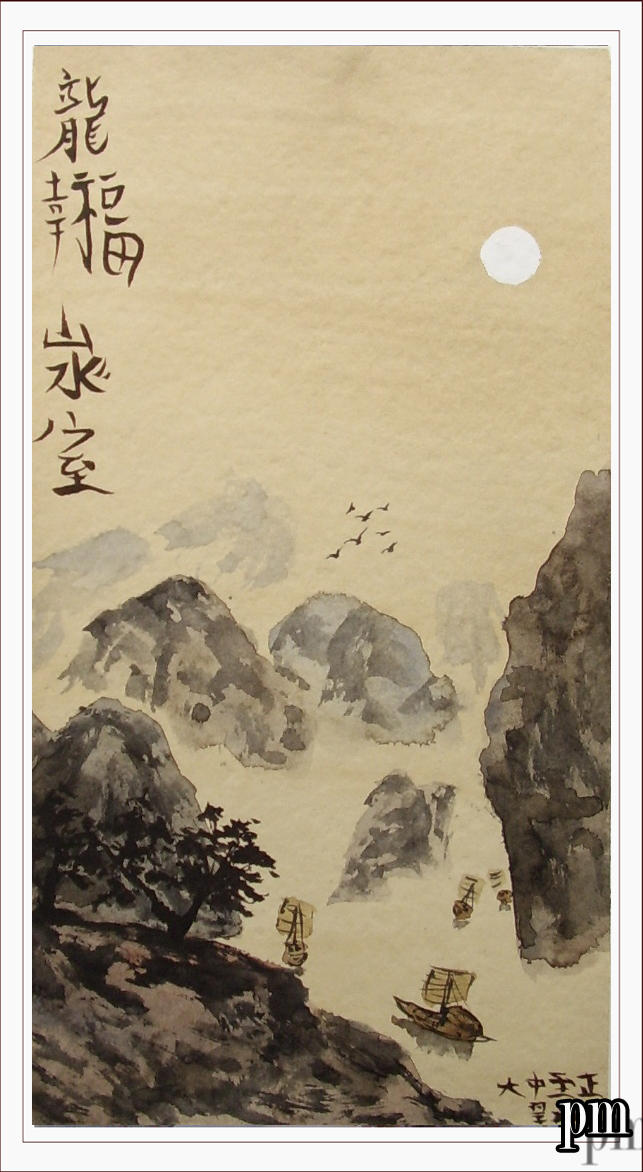 龍
幸福
山水
室
大中至正
pm